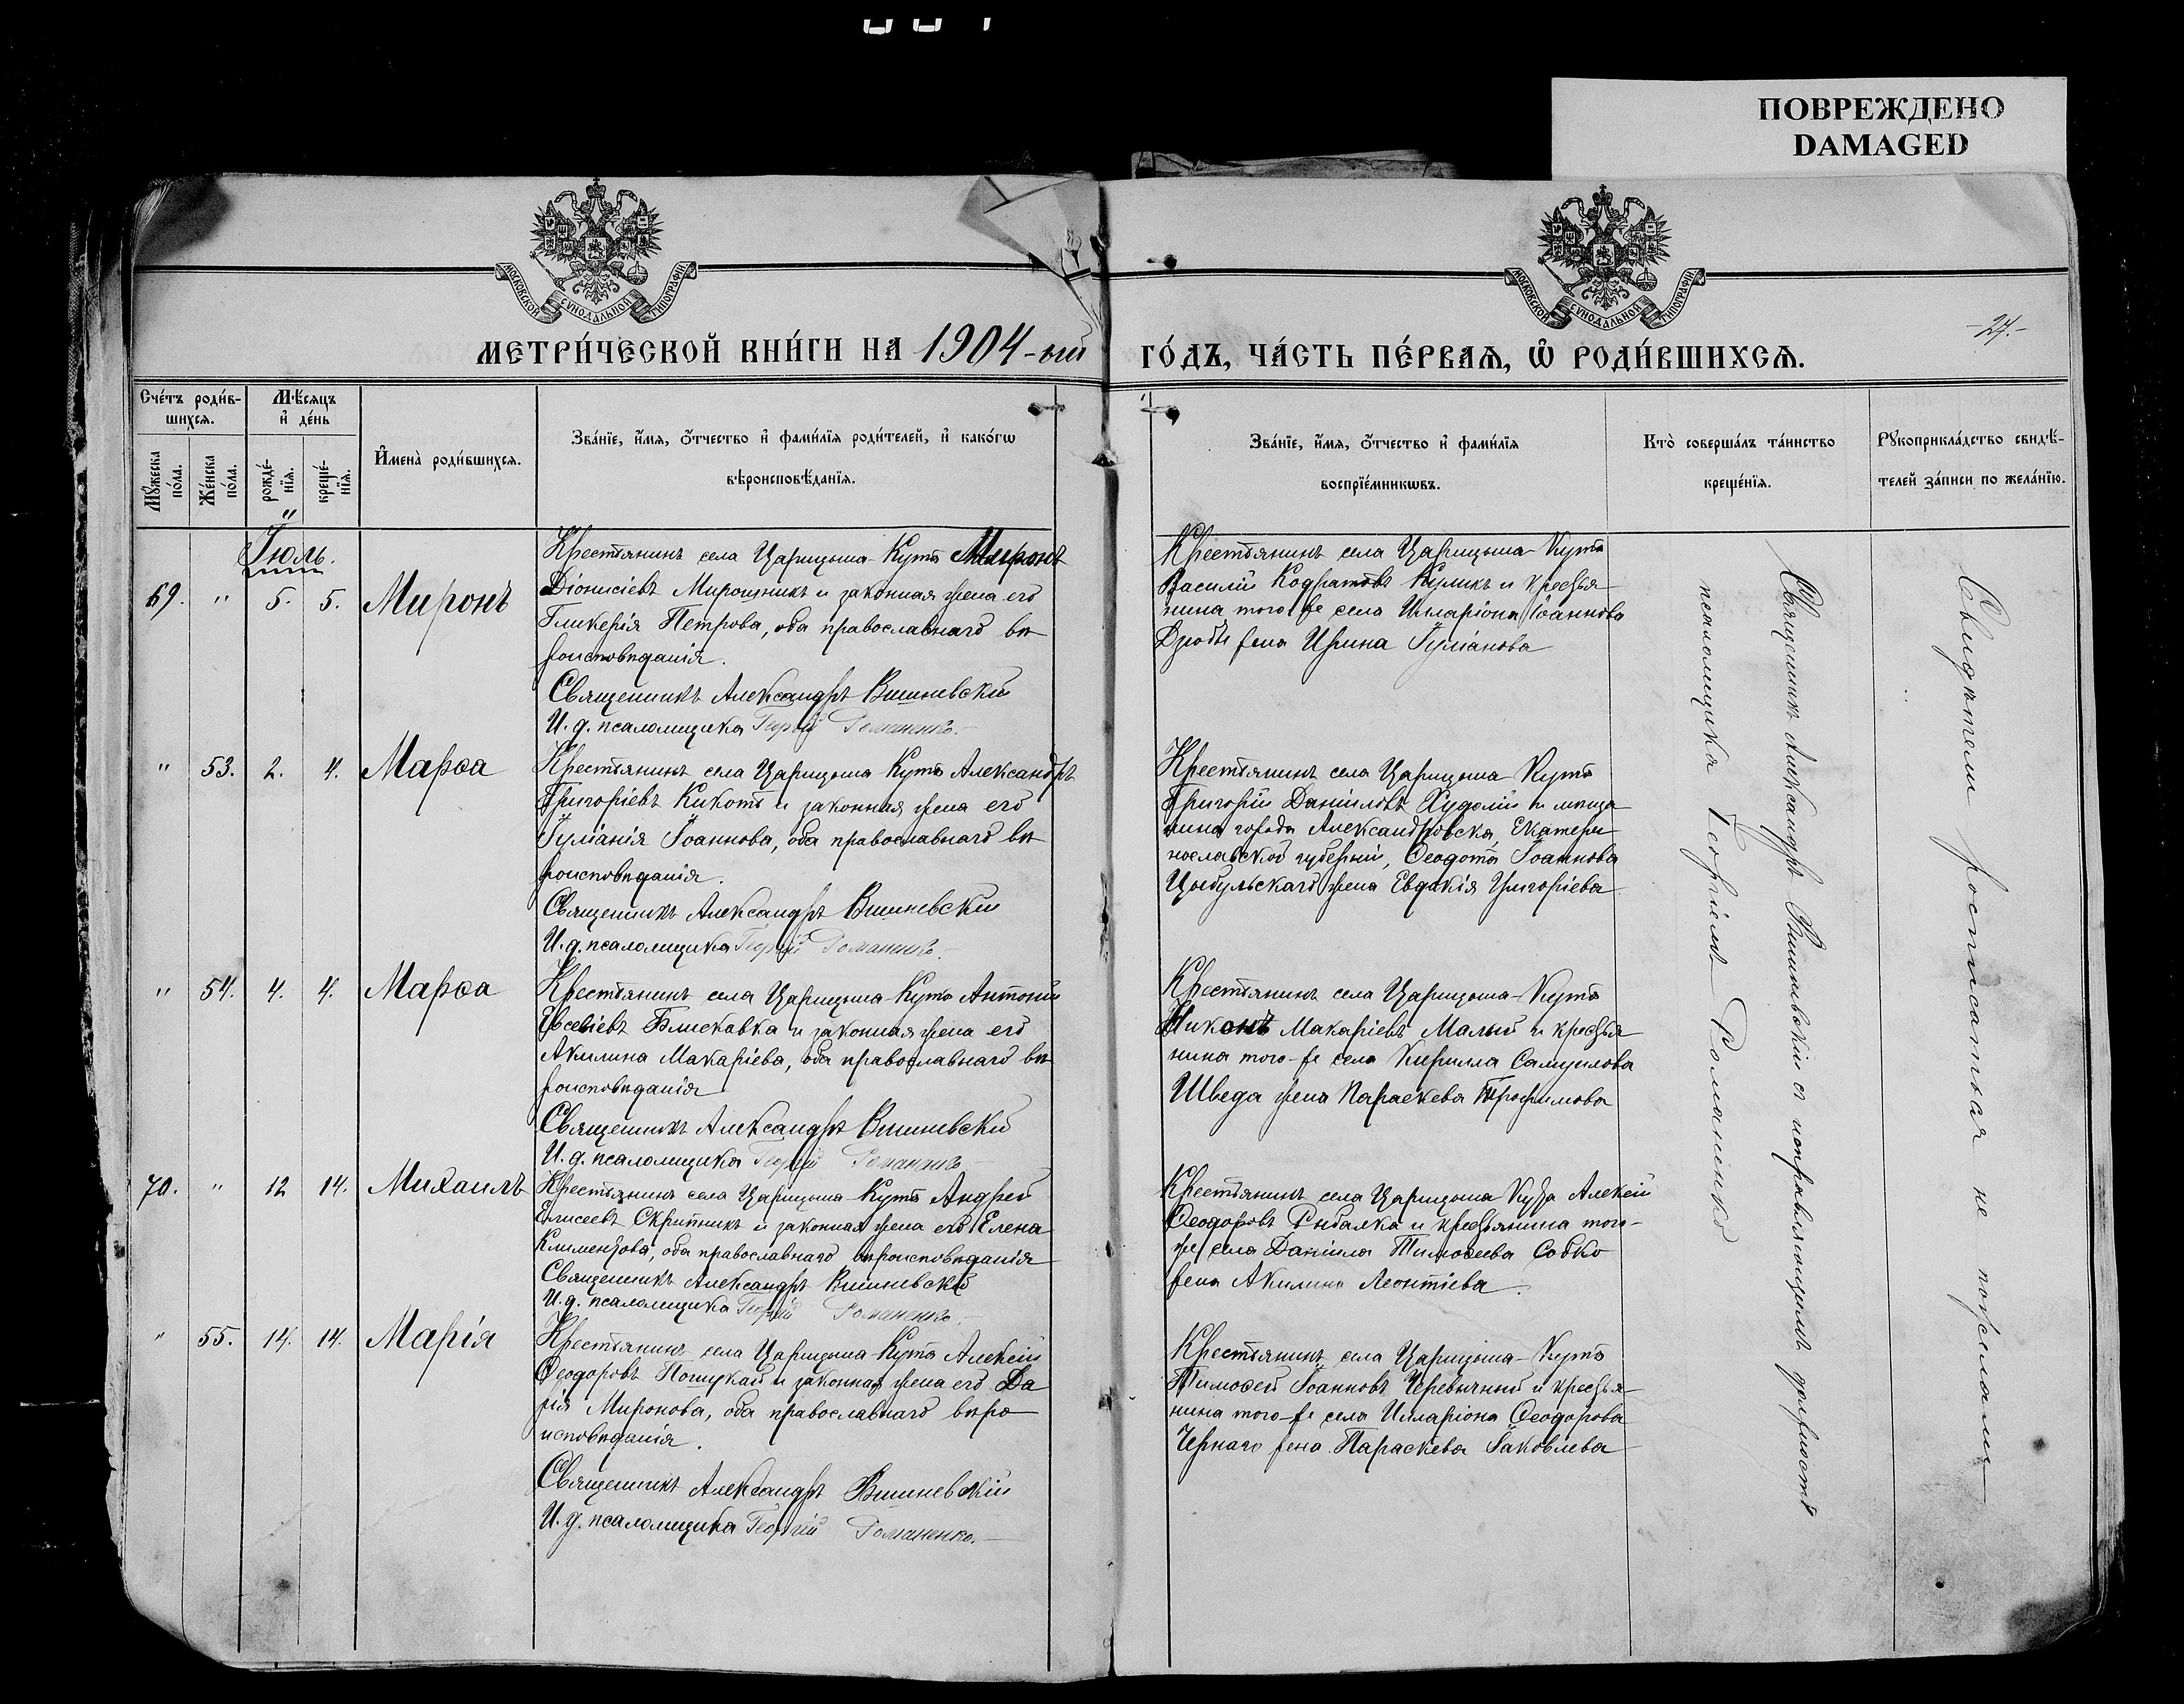 ПОВРЕЖДЕНО
DAMAGED
МОСКОВСКОЙ СѴНОДАЛЬНОЙ ТИПОГРАФІИ
МОСКОВСКОЙ СѴНОДАЛЬНОЙ ТИПОГРАФІИ
-27.-
МЕТРИ́ЧЕСКОЙ КНИ́ГИ НА 1904-ый
ГО́ДЪ, ЧА́СТЬ ПЕ́РВАѦ, Ѡ҆ РОДИ́ВШИХСѦ.
Сче́тъ роди́в-
шихсѧ.
Мꙋ́жеска
по́ла.
Же́нска
по́ла.
Мѣ́сѧцъ
и҆ де́нь
рожде́-
нїѧ.
креще́-
нїѧ.
И҆мена̀ роди́вшихсѧ.
Зва́нїе, и҆́мѧ, ѻ҆́тчество и҆ фами́лїѧ роди́телей, и҆ како́гѡ
вѣроисповѣ́данїѧ.
Зва́нїе, и҆́мѧ, ѻ҆́тчество и҆ фами́лїѧ
воспрїе́мникѡвъ.
Кто̀ соверша́лъ та́инство
креще́нїѧ.
Рꙋкоприкла́дство свидѣ́-
телей за́писи по жела́нїю.
Іюль.
69. " 5. 5. Миронъ
Крестьянинъ села Царицына-Кута Миронъ
Діонисіевъ Мирошникъ и законная жена его
Гликерія Петрова, оба православнаго вѣ-
роисповѣданія.
Священникъ Александръ Вишневскій
И. д. псаломщика Георгій Романенко.
Крестьянинъ села Царицына-Кута
Василій Кодратовъ Куликъ и крестья-
нина того-же села Илларіона Іоаннова
Дзюбы жена Ирина Іуліанова
" 53. 2. 4. Марѳа
Крестьянинъ села Царицына-Кута Александръ
Григоріевъ Кикоть и законная жена его
Іуліанія Іоаннова, оба православнаго вѣ-
роисповѣданія.
Священникъ Александръ Вишневскій
И. д. псаломщика Георгій Романенко.
Крестьянинъ села Царицына-Кута
Григорій Даніиловъ Худолій и мѣща-
нина города Александровска, Екатери-
нославской губерніи, Ѳеодота Іоаннова
Цыбульскаго жена Евдокія Григоріева
" 54. 4. 4. Марѳа
Крестьянинъ села Царицына-Кута Антоній
Евсевіевъ Блискавка и законная жена его
Акилина Макаріева, оба православнаго вѣ-
роисповѣданія
Священникъ Александръ Вишневскій
И. д. псаломщика Георгій Романенко
Крестьянинъ села Царицына-Кута
Никонъ Макаріевъ Малый и крестья-
нина того-же села Кирилла Самуилова
Шведа жена Параскева Трофимова
70. " 12 14. Михаилъ
Крестьянинъ села Царицына-Кута Андрей
Елисеевъ Скрипникъ и законная жена его Елена
Климентова, оба православнаго вѣроисповѣданія
Священникъ Александръ Вишневскій
И. д. псаломщика Георгій Романенко.
Крестьянинъ села Царицына Кута Алексій
Ѳеодоровъ Рыбалка и крестьянина того-
же села Даніила Тимоѳеева Собко
жена Акилина Леонтіева.
" 55. 14. 14. Марія
Крестьянинъ села Царицына-Кута Алексій
Ѳеодоровъ и законная жена его Да-
рія Миронова, оба православнаго вѣро-
исповѣданія.
Священникъ Александръ Вишневскій
И. д. псаломщика Георгій Романенко.
Крестьянинъ села Царицына-Кута
Тимоѳей Іоанновъ Черевычный и крестья-
нина того-же села Илларіона Ѳеодорова
Чернаго жена Параскева Іаковлева
Священникъ Александръ Вишневскій съ исправляющимъ должность
псаломщика Георгіемъ Романенко
Свидѣтели росписаться не пожелали